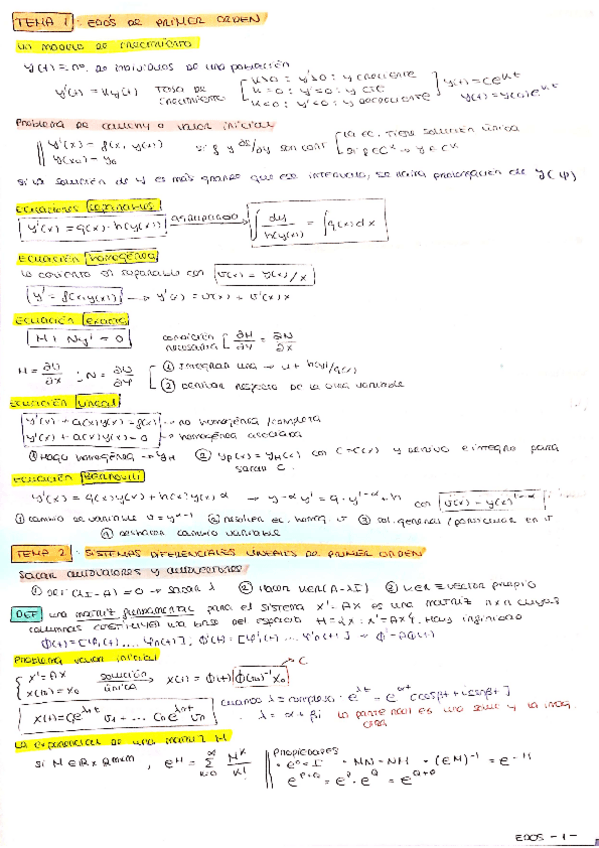 TEMA 1: EDOS DE PRIMER ORDEN
UN MODELO DE CRECIMIENTO
y(t) = no. de individuos de una población
y'(t) = k y(t) TASA DE CRECIMIENTO [ k>0: y'>0: y creciente
k=0: y'=0: y cte
k<0: y'<0: y decreciente ] y(t) = C e^{kt}
y(t) = y(0) e^{kt}
Problema de Cauchy o valor inicial
y'(x) = f(x, y(x))
y(x0) = y0
si f y ∂f/∂y son cont [ la ec. tiene solución única
si la solución de y es más grande que ese intervalo, se llama prolongación de y (φ)
ECUACIONES SEPARABLES
y'(x) = g(x)·h(y(x)) → ∫ dy/h(y(x)) = ∫ g(x) dx
ECUACIÓN homogénea
la convierto en separable con v(x) = y(x)/x
y' = f(x, y(x)) → y'(x) = v(x) + v'(x) x
ECUACIÓN exacta
M + N y' = 0 condición necesaria [ ∂M/∂y = ∂N/∂x
M = ∂U/∂x ; N = ∂U/∂y [ ① Integrar una → u + h(y)/g(x)
② derivar respecto de la otra variable
ECUACIÓN lineal
y'(x) + a(x)y(x) = f(x) → no homogénea/completa
y'(x) + a(x)y(x) = 0 → homogénea asociada
① Hago homogénea → yH ② yp(x) = yH(x) con C = C(x) y derivo e integro para
sacar C.
ECUACIÓN BERNOULLI
y'(x) = g(x)y(x) + h(x)y(x)^α → y^{-α} y' = g·y^{1-α} + h con v(x) = y(x)^{1-α}
① cambio de variable ② resolver ec. homog. v ③ sol. general/particular en v
④ deshacer cambio variable
TEMA 2: SISTEMAS DIFERENCIALES LINEALES DE PRIMER ORDEN
Sacar autovalores y autovectores
① DET(λI-A) = 0 → sacar λ ② Hacer KER(A-λI) ③ KER = vector propio
DEF una matriz fundamental para el sistema X' = AX es una matriz n×n cuyas
columnas constituyen una base del espacio H = {x : x' = Ax}. Hay infinidad
Problema valor inicial
x' = AX
x(t0) = x0
solución única x(t) = Φ(t) Φ(t0)^{-1} x0 → C
x(t) = C1 e^{λ1 t} v1 + ... Cn e^{λn t} vn
cuando λ = complejo · e^{λt} = e^{αt} [cos βt + i sen βt]
λ = α + βi la parte real es una sol y la imag.
otra
La exponencial de una matriz M
e^M = Σ_{k=0}^{∞} M^k/k!
Propiedades
· e^0 = I · MN = NM · (e^M)^{-1} = e^{-M}
e^{P+Q} = e^P · e^Q = e^{Q+P}
EDOS - 1 -